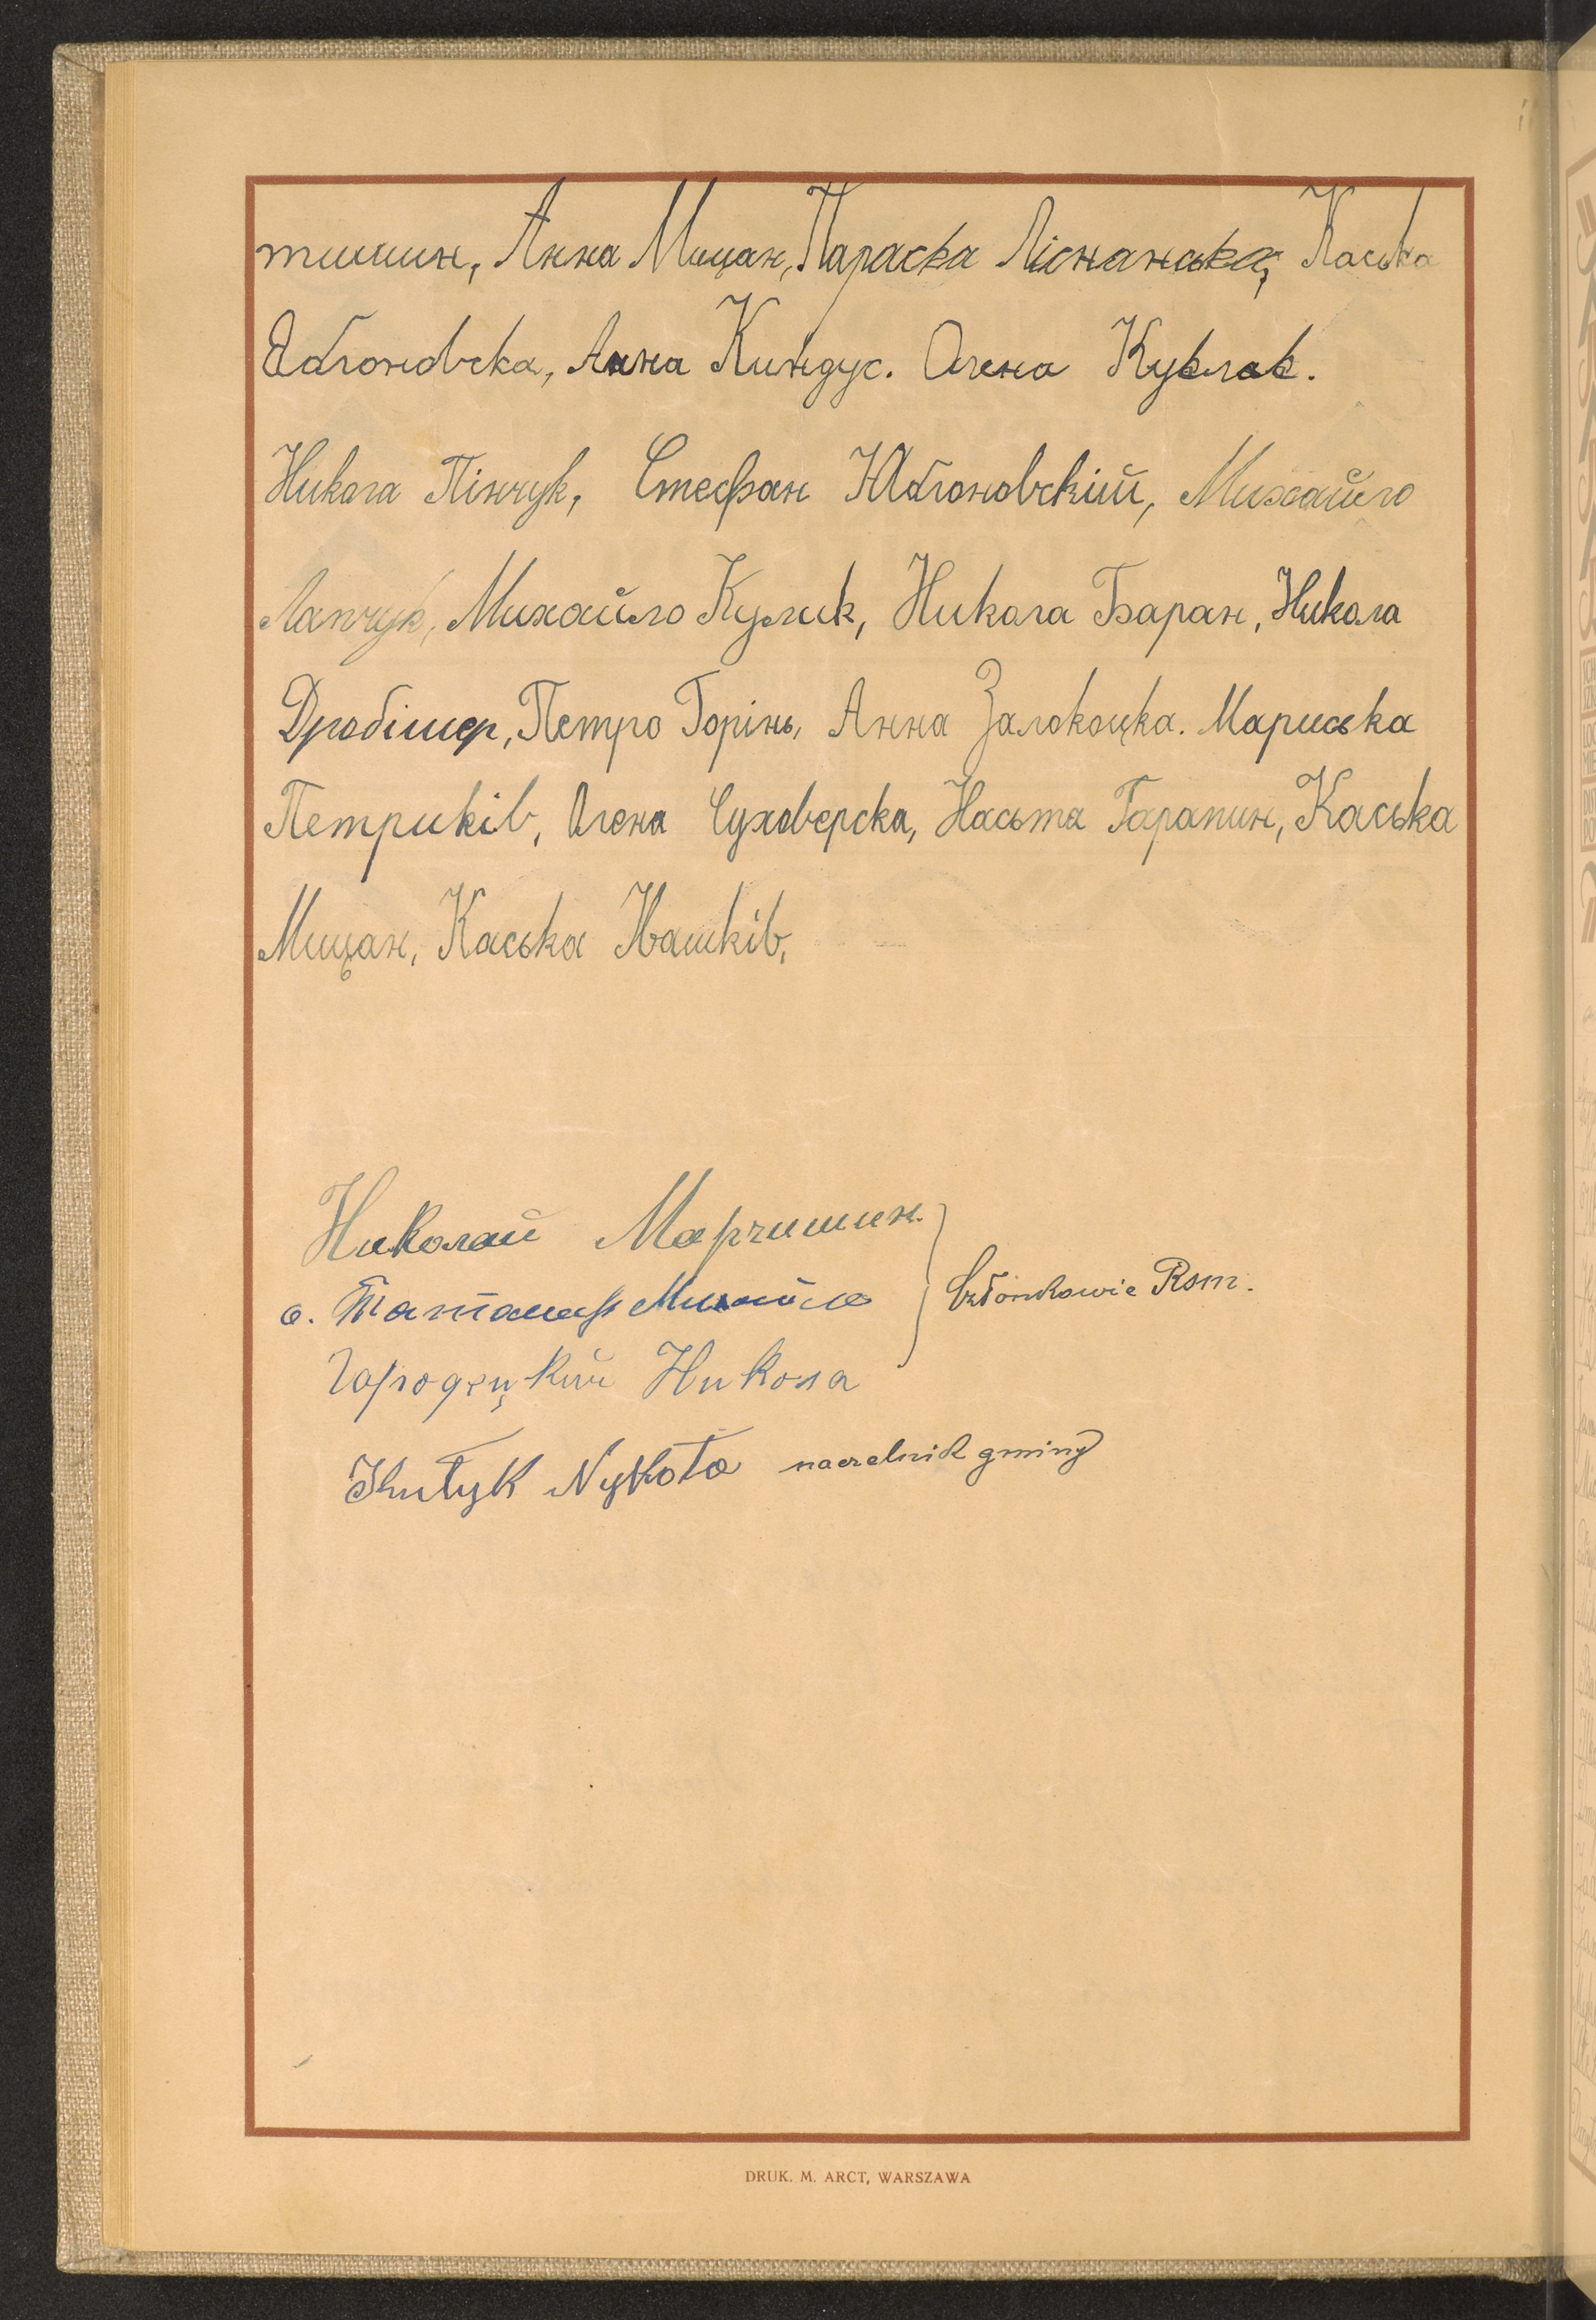 тишин, Анна Мицан, Параска Ліснанська, Каська
Яблоновска, Анна Киндус. Олена Кувлав.
Никола Пінчук, Стефан Яблоновскій, Михайло
Лапчук, Михайло Кулик, Никола Баран, Никола
Дробішер, Петро Горінь, Анна Залокоцка. Мариська
Петриків, Олена Суховерска, Насьта Гарапин, Каська
Мицан, Каська Івашків,
Николай Марчишин.
о. Михайло
Członkowie Kom.
Городецкий Никола
Nykoła naczelnik gminy
DRUK. M. ARCT, WARSZAWA